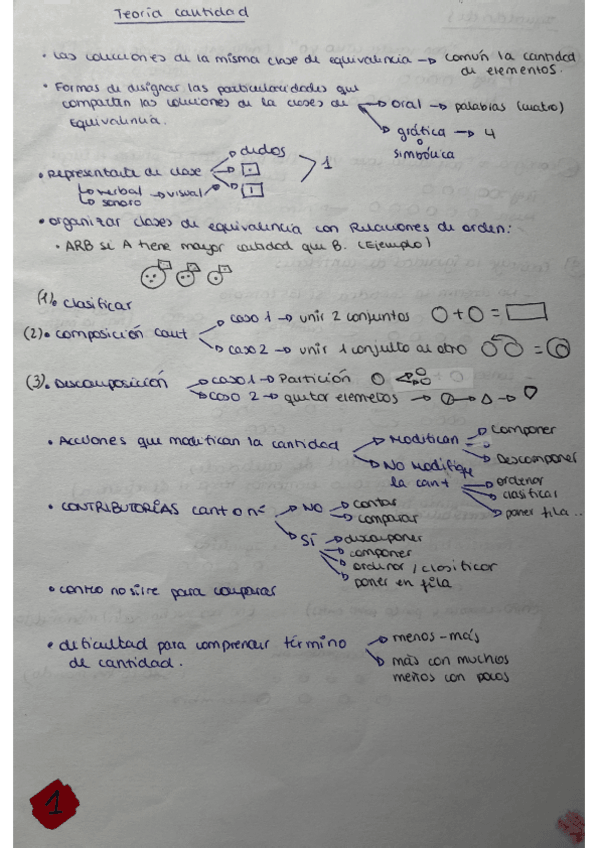 Teoría cantidad
• Las colecciones de la misma clase de equivalencia → común la cantidad
de elementos.
• Formas de designar las particularidades que
comparten las colecciones de la clases de → oral → palabras (cuatro)
Equivalencia. → gráfica → 4
o
simbólica
• Representante de clase → dedos 1
↳ verbal → visual
↳ sonoro
• organizar clases de equivalencia con Relaciones de orden:
• ARB si A tiene mayor cantidad que B. (Ejemplo)
(1). clasificar
(2). composición cant → caso 1 → unir 2 conjuntos O + O =
→ caso 2 → unir 1 conjunto al otro =
(3). Descomposición → caso 1 → Partición
→ caso 2 → quitar elementos →
• Acciones que modifican la cantidad → Modifican → componer
→ Descomponer
→ No Modifique
la cant → ordenar
→ clasificar
→ poner fila ..
• CONTRIBUTORIAS cant → NO → contar
→ comparar
→ SÍ → descomponer
→ componer
→ ordenar / clasificar
→ poner en fila
• no sirve para comparar
• dificultad para comprender término → menos - más
de cantidad. → más con muchos
menos con pocos
1